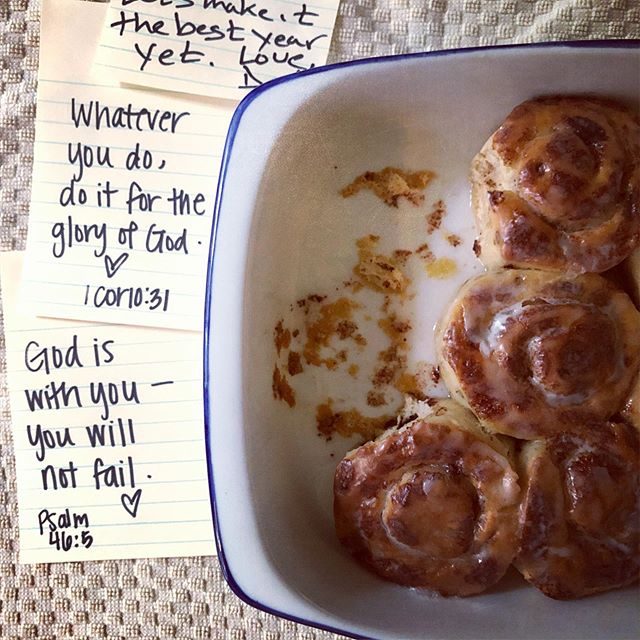 Let's make it
the best year
yet. Love,
D
Whatever
you do,
do it for the
glory of God.
1 Cor 10:31
God is
with you —
you will
not fail.
Psalm
46:5